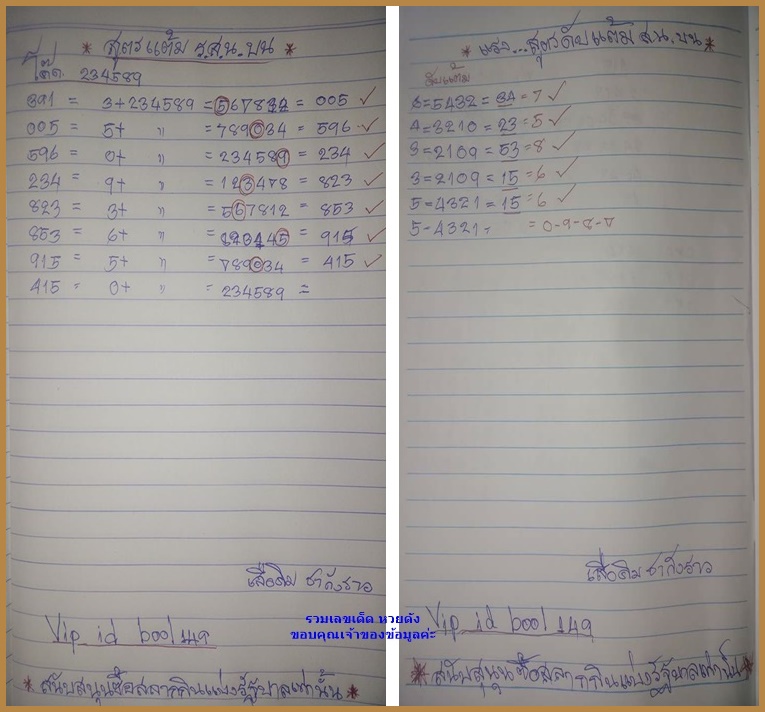 * สูตรแต้ม ร.ส.น. บน *
โค๊ด. 234589
391 = 3+234589 = 567832 = 005 ✓
005 = 5+ " = 789034 = 596 ✓
596 = 0+ " = 234589 = 234 ✓
234 = 9+ " = 123478 = 823 ✓
823 = 3+ " = 567812 = 853 ✓
853 = 6+ " = 823445 = 915 ✓
915 = 5+ " = 789034 = 415 ✓
415 = 0+ " = 234589 =
เสือดิม ชากังราว
Vip id bool 149
* สนับสนุนซื้อสลากกินแบ่งรัฐบาลเท่านั้น *
* แรง...สูตรดับแต้ม ส.น. บน *
ดับแต้ม
6=5432 = 34 = 7 ✓
4=3210 = 23 = 5 ✓
3=2109 = 53 = 8 ✓
3=2109 = 15 = 6 ✓
5=4321 = 15 = 6 ✓
5-4321 = = 0-9-8-7
เสือดิม ชากังราว
Vip id bool 149
* สนับสนุนซื้อสลากกินแบ่งรัฐบาลเท่านั้น *
รวมเลขเด็ด หวยดัง
ขอบคุณเจ้าของข้อมูลค่ะ